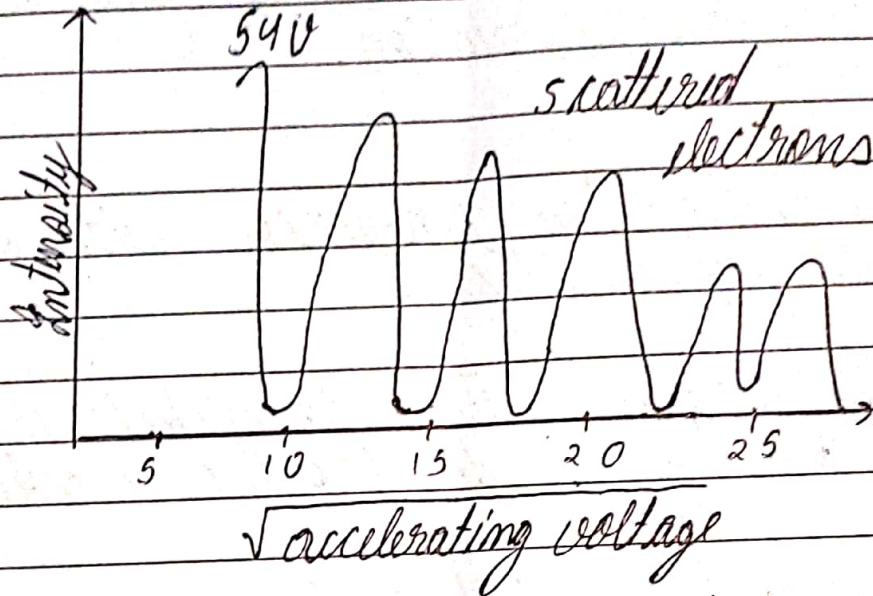 54V
scattered
electrons
Intensity
5 10 15 20 25
√accelerating voltage